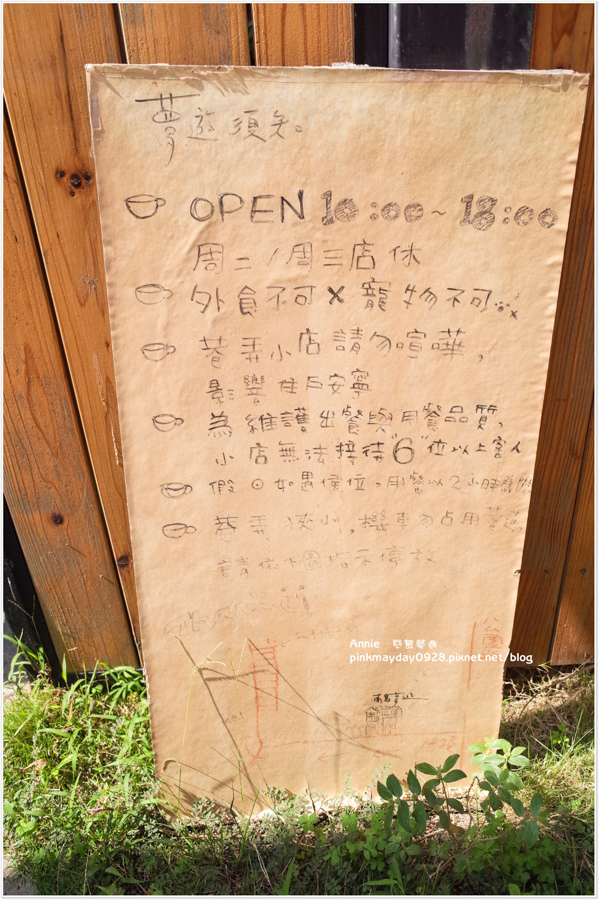 夢遊須知。
OPEN 10:00~18:00
周二/周三店休
外食不可×寵物不可
巷弄小店請勿喧嘩,
影響住戶安寧
為維護出餐與用餐品質,
小店無法接待"6"位以上客人
假日如遇候位,用餐以2小時為
巷弄狹小,機車勿占用巷道
請依下圖指示停放
公園
Annie
pinkmayday0928.pixnet.net/blog